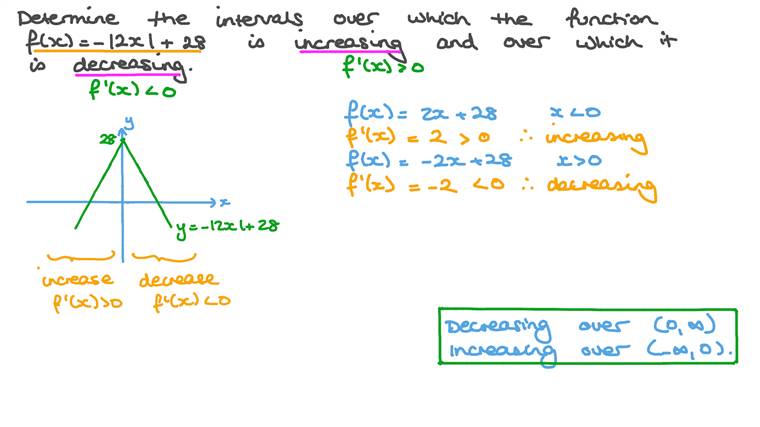 Determine the intervals over which the function
f(x) = -|2x| + 28 is increasing and over which it
is decreasing.
f'(x) > 0
f'(x) < 0
f(x) = 2x + 28 x < 0
f'(x) = 2 > 0 ∴ increasing
f(x) = -2x + 28 x > 0
f'(x) = -2 < 0 ∴ decreasing
y
28
x
y = -|2x| + 28
increase decrease
f'(x) > 0 f'(x) < 0
Decreasing over (0, ∞)
Increasing over (-∞, 0).